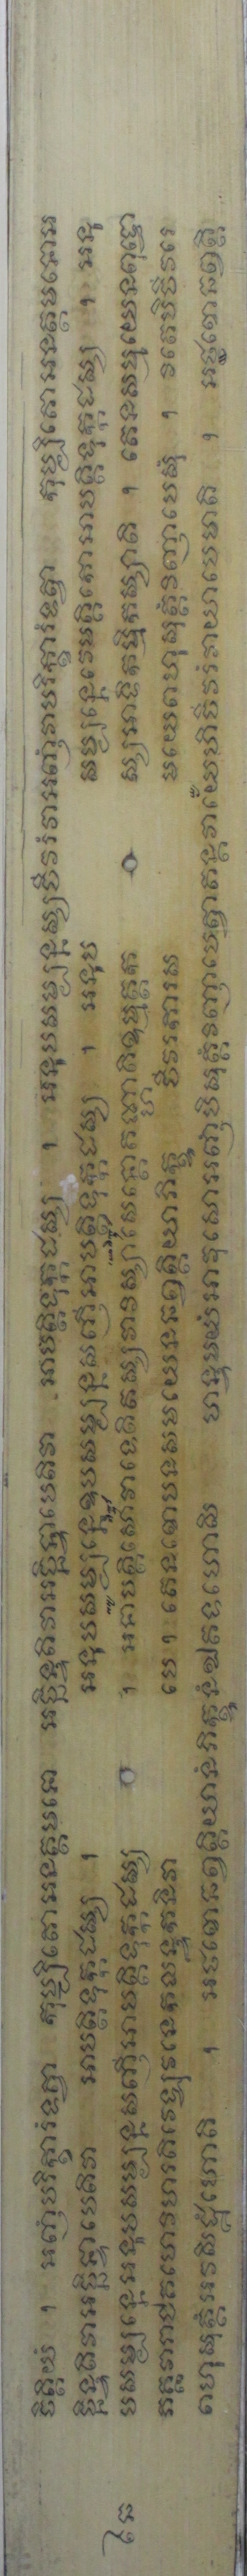 ចិត្តិយំ ។ អញ្ញំបរិក្ខារំទត្វា កុប្បិតោអនត្តមនោ អច្ឆិន្ទតិវាអច្ឆិន្ទាបេតិវា អាបត្តិទុក្កដស្ស ។ អនុបសម្បន្នស្សចីវរំវាអញ្ញំវាបរិក្ខារំទត្វា កុប្បិតោអនត្តមនោអ
ច្ឆិន្ទតិវាអច្ឆិន្ទាបេតិវា អាបត្តិទុក្កដស្ស ។ អនុបសម្បន្នេឧបសម្បន្នសញ្ញីអាបត្តិទុក្កដស្ស ។ អនុប សម្បន្នេវេមតិកោអាបត្តិទុក្កដស្ស ។ អនុ
បសម្បន្នេអនុបសម្បន្នសញ្ញីអាបត្តិទុក្កដស្ស ។ អនាបត្តិសោវាទេតិតស្សវាវិស្សាសេន្តោគណ្ហាតិឧម្មត្តក ស្សអាទិកម្មិកស្សាតិ ។ តេនសមយេនពុទ្ធោ
ភគវារាជគហេវិហរតិវេឡុវនេកលន្ទកនិវា បេ ។ តេនខោបនសមយេនឆព្វគ្គិយាភិក្ខូ ចីវរការស មយេពហុសុត្តំវិញ្ញាបេសុំ ។ កតេបិចីវរេ
ពហុសុត្តំអវសិដ្ឋំហោតិ ។ អថខោឆព្វគ្គិយានំភិក្ខូនំឯតទហោសិ ហន្ទមយំអាវុសោអញ្ញំបិសុត្តំវិញ្ញាបេត្វាតន្តវាយេហិចីវរំវាយាបេមាតិ ។ អថខោឆព្វគ្គិ